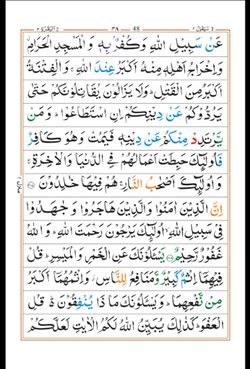 سيقول ٢ 48 ٣٩ البقرة ٢
عَنْ سَبِيْلِ اللّٰهِ وَكُفْرٌۢ بِهٖ وَ الْمَسْجِدِ الْحَرَامِ
وَاِخْرَاجُ اَهْلِهٖ مِنْهُ اَكْبَرُ عِنْدَ اللّٰهِ ۚ وَ الْفِتْنَةُ
اَكْبَرُ مِنَ الْقَتْلِ ؕ وَلَا يَزَالُوْنَ يُقَاتِلُوْنَكُمْ حَتّٰى
يَرُدُّوْكُمْ عَنْ دِيْنِكُمْ اِنِ اسْتَطَاعُوْا ؕ وَ مَنْ
يَّرْتَدِدْ مِنْكُمْ عَنْ دِيْنِهٖ فَيَمُتْ وَهُوَ كَافِرٌ
فَاُولٰٓئِكَ حَبِطَتْ اَعْمَالُهُمْ فِى الدُّنْيَا وَ الْاٰخِرَةِ ۚ
وَ اُولٰٓئِكَ اَصْحٰبُ النَّارِ ۚ هُمْ فِيْهَا خٰلِدُوْنَ
اِنَّ الَّذِيْنَ اٰمَنُوْا وَ الَّذِيْنَ هَاجَرُوْا وَ جٰهَدُوْا
فِىْ سَبِيْلِ اللّٰهِ ۙ اُولٰٓئِكَ يَرْجُوْنَ رَحْمَتَ اللّٰهِ ؕ وَ اللّٰهُ
غَفُوْرٌ رَّحِيْمٌ يَسْـَٔلُوْنَكَ عَنِ الْخَمْرِ وَ الْمَيْسِرِ ؕ قُلْ
فِيْهِمَآ اِثْمٌ كَبِيْرٌ وَّ مَنَافِعُ لِلنَّاسِ ؗ وَ اِثْمُهُمَآ اَكْبَرُ
مِنْ نَّفْعِهِمَا ؕ وَ يَسْـَٔلُوْنَكَ مَا ذَا يُنْفِقُوْنَ ؕ قُلِ
الْعَفْوَ ؕ كَذٰلِكَ يُبَيِّنُ اللّٰهُ لَكُمُ الْاٰيٰتِ لَعَلَّكُمْ